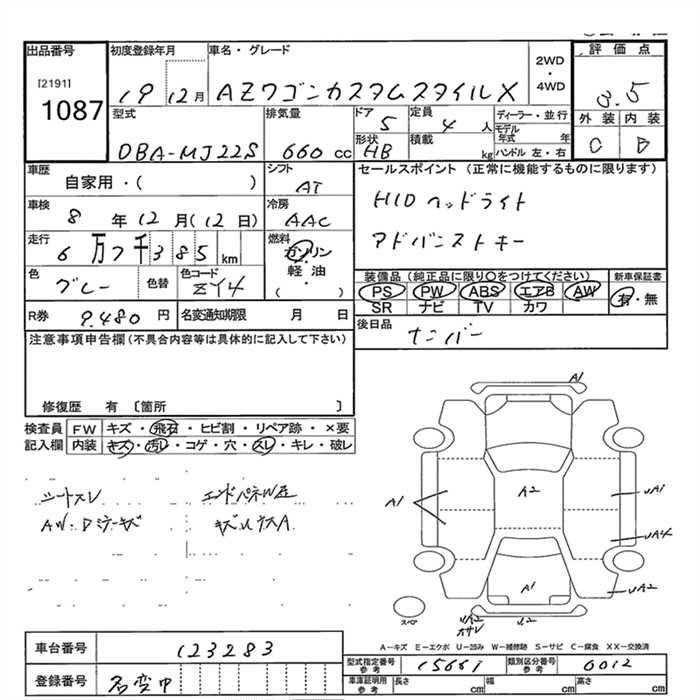 出品番号 初度登録年月 車名・グレード 2WD・4WD 評価点
[2191]
1087 19 12月 AZワゴンカスタムスタイルX 3.5
型式 排気量 ドア 定員 ディーラー・並行 外装 内装
DBA-MJ22S 660 cc 5 4 人 モデル年式 年 C B
形状 積載 ハンドル 左・右
HB kg
車歴 シフト セールスポイント (正常に機能するものに限ります)
自家用・( ) AT
車検 8 年 12 月 (12 日) 冷房 AAC HIDヘッドライト
走行 6 万 7 千 385 km 燃料 ガソリン・軽油・( ) アドバンストキー
色 グレー 色替 色コード ZY4
装備品 (純正品に限り○をつけてください) 新車保証書
PS PW ABS エアB AW 有・無
SR ナビ TV カワ
R券 9,480 円 名変通知期限 月 日 後日品 ナンバー
注意事項申告欄 (不具合内容等は具体的に記入して下さい)
修復歴 有 〔箇所 〕
検査員 FW キズ・飛石・ヒビ割・リペア跡・×要
記入欄 内装 キズ・汚レ・コゲ・穴・スレ・キレ・破レ
シートスレ
AW・Dラーキズ
A1
A1
A2
A1
A2
A1
A-キズ E-エクボ U-凹み W-補修跡 S-サビ C-腐食 XX-交換済
車台番号 123283
型式指定番号 参考 15661 類別区分番号 参考 0012
登録番号 名変中
車庫証明用 参考 長さ cm 幅 cm 高さ cm
スペア